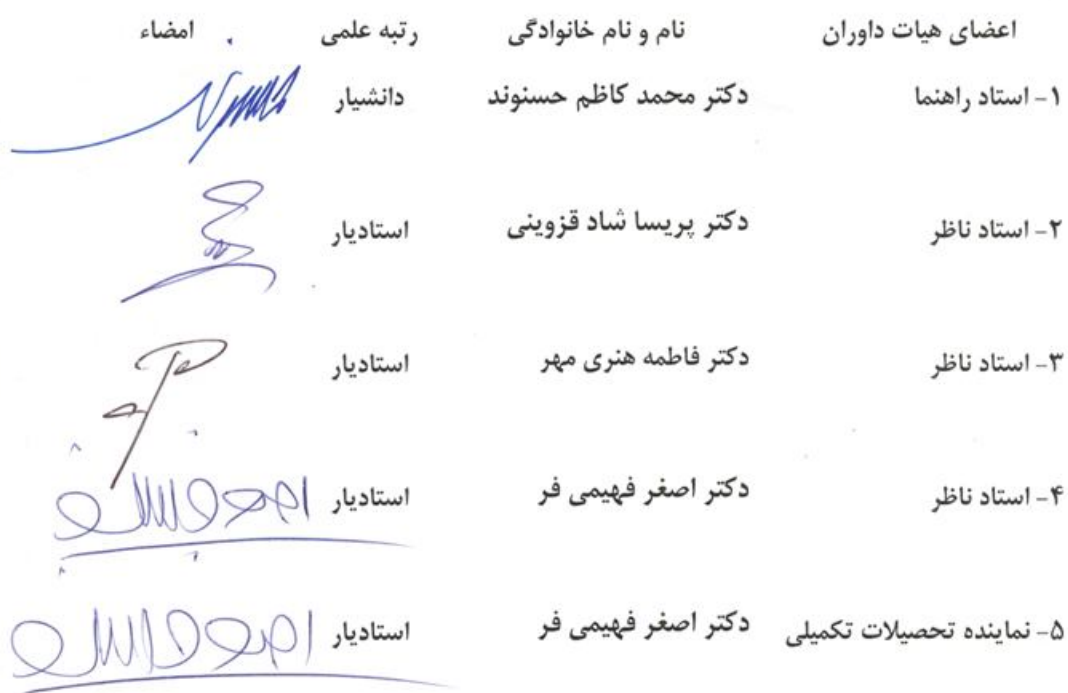 اعضای هیات داوران نام و نام خانوادگی رتبه علمی امضاء
۱- استاد راهنما دکتر محمد کاظم حسنوند دانشیار
۲- استاد ناظر دکتر پریسا شاد قزوینی استادیار
۳- استاد ناظر دکتر فاطمه هنری مهر استادیار
۴- استاد ناظر دکتر اصغر فهیمی فر استادیار
۵- نماینده تحصیلات تکمیلی دکتر اصغر فهیمی فر استادیار